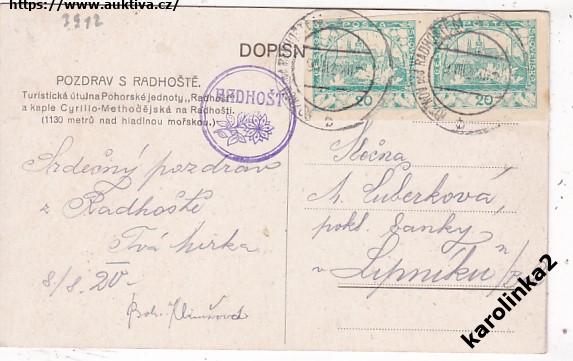 https://www.auktiva.cz/
3912
DOPISN
POZDRAV S RADHOŠTĚ.
Turistická útulna Pohorské jednoty „Radhošť“
a kaple Cyrillo-Methodějská na Radhošti.
(1130 metrů nad hladinou mořskou.)
RADHOŠŤ
POŠTA
20
POŠTA
20
Srdečný pozdrav
z Radhoště
Tvá Mirka
8/8. 20
Slečna
A. Suberková
pokl. banky
v Lipníku n/B
karolinka2